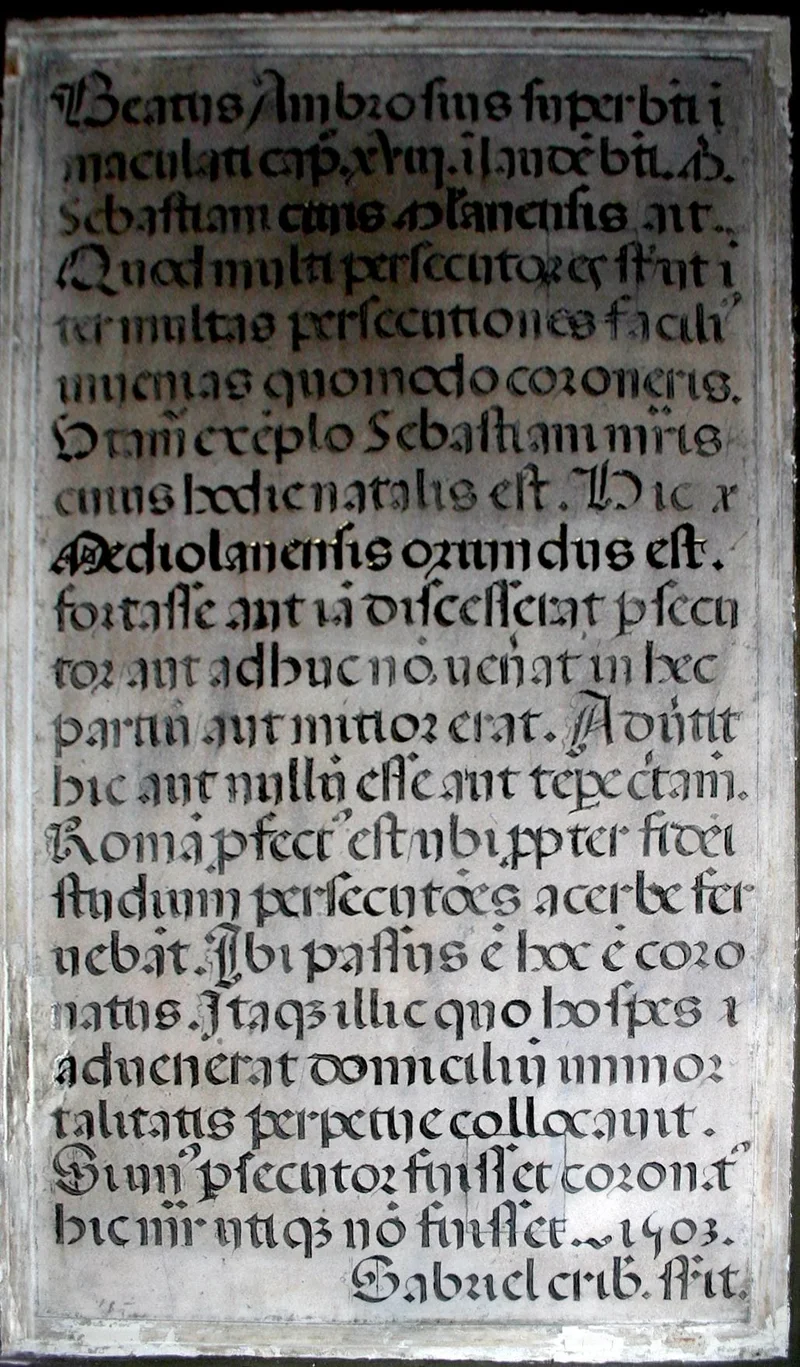 Beatus Ambrosius super bti i
maculati cap. xviiij. i laudē bti. M.
Sebastiani ciuis Mlanensis ait.
Quod multi persecutores st ut i
ter multas persecutiones facili'
inuenias quomodo coroneris.
Utamr exēplo Sebastiani mris
cuius hodie natalis est. Hic
Mediolanensis oriundus est.
fortasse aut iā discesserat psecu
tor aut adhuc nō uenāt in hec
partiū aut mitior erat. Aduūtit
hic aut nullū esse aut tepe ctam.
Romā pfect' est ubi ppter fidei
studium persecutōes acerbe fer
uebāt. Ibi passus ē hoc ē coro
natus. Itaqȝ illic quo hospes i
aduenerat domicilium immor
talitatis perpetue collocauit.
Si un' psecutor fuisset coronat'
hic mr utiqȝ nō fuisset. 1503.
Gabriel crib. sit.